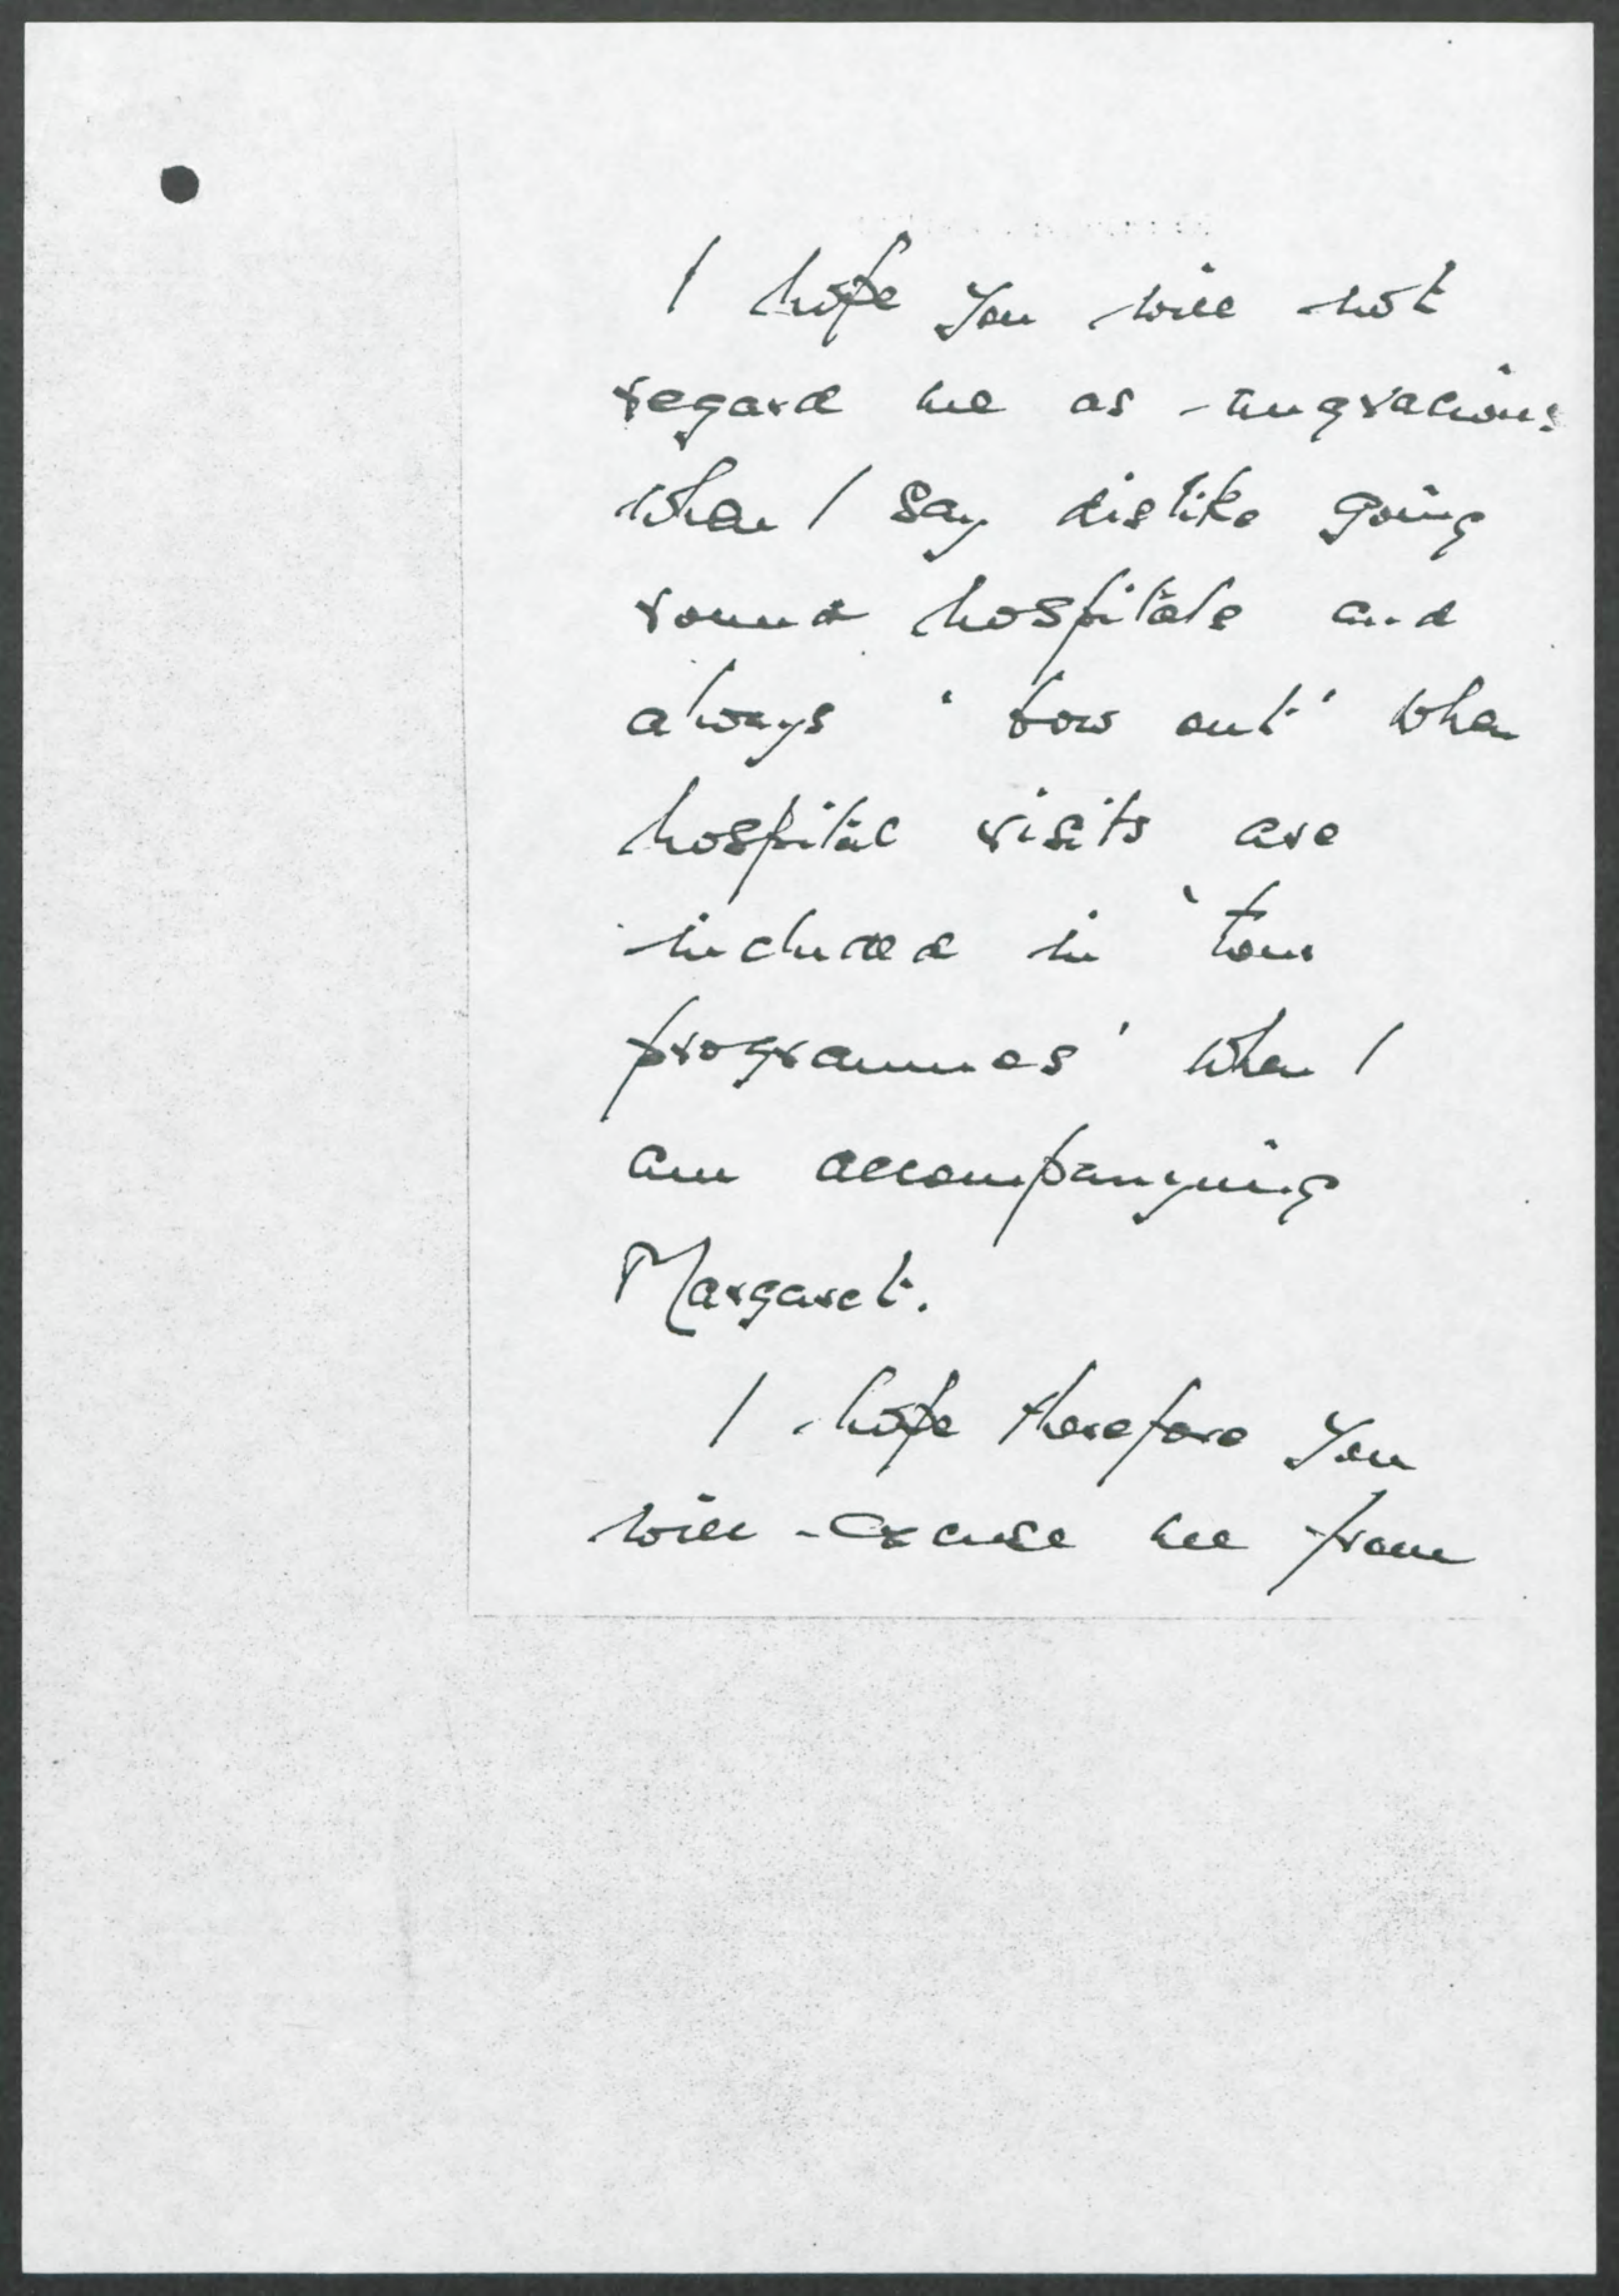 I hope you will not
regard me as ungracious
when I say dislike going
round hospitals and
always 'bow out' when
hospital visits are
included in 'tour
programmes' when I
am accompanying
Margaret.
I hope therefore you
will excuse me from